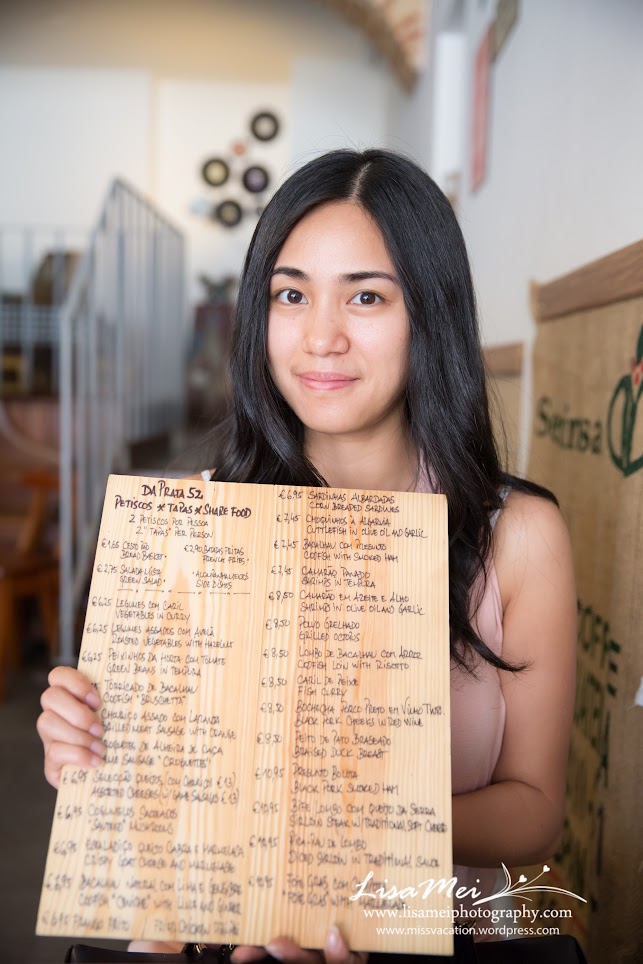 DA PRATA 52
PETISCOS * TAPAS * SHARE FOOD
2 PETISCOS POR PESSOA
2 "TAPAS" PER PERSON
€1,65 CESTO PÃO
BREAD BASKET
€2,90 BATATAS FRITAS
FRENCH FRIES
€2,75 SALADA
GREEN SALAD
SIDE DISHES
€6,25 LEGUMES COM CARIL
VEGETABLES IN CURRY
€6,25 LEGUMES ASSADOS COM AVELÃ
ROASTED VEGETABLES WITH HAZELNUT
€6,25 PEIXINHOS DA HORTA COM TOMATE
GREEN BEANS IN TEMPURA
TORRICADO DE BACALHAU
CODFISH "BRUSCHETTA"
CHOURIÇO ASSADO COM LARANJA
GRILLED MEAT SAUSAGE WITH ORANGE
CROQUETES DE ALHEIRA DE CAÇA
GAME SAUSAGE "CROQUETTES"
€6,95 SELECÇÃO QUEIJOS COM CHOURIÇO €13
ASSORTED CHEESES (W/ GAME SAUSAGE €13)
€6,95 COGUMELOS SALTEADOS
"SAUTEED" MUSHROOMS
€6,95 QUEIJO CABRA E MARMELADA
CRISPY GOAT CHEESE AND MARMELADE
€6,95 BACALHAU NATURAL COM LIMA E GENGIBRE
CODFISH "CEVICHE" WITH LIMA AND GINGER
€6,95 FRANGO FRITO FRIED CHICKEN
€6,95 SARDINHAS ALBARDADAS
CORN BREADED SARDINES
€7,45 CHOQUINHOS À ALGARVIA
CUTTLEFISH IN OLIVE OIL AND GARLIC
€7,45 BACALHAU COM PRESUNTO
CODFISH WITH SMOKED HAM
€7,45 CAMARÃO PANADO
SHRIMPS IN TEMPURA
€8,50 CAMARÃO EM AZEITE E ALHO
SHRIMPS IN OLIVE OIL AND GARLIC
€8,50 POLVO GRELHADO
GRILLED OCTOPUS
€8,50 LOMBO DE BACALHAU COM ARROZ
CODFISH LOIN WITH RISOTTO
€8,50 CARIL DE PEIXE
FISH CURRY
€8,50 BOCHECHA PORCO PRETO EM VINHO TINTO
BLACK PORK CHEEKS IN RED WINE
€8,50 PEITO DE PATO BRASEADO
BRAISED DUCK BREAST
€10,95 PRESUNTO BOLOTA
BLACK PORK SMOKED HAM
€10,95 BIFE LOMBO COM QUEIJO DA SERRA
SIRLOIN STEAK W/ TRADITIONAL SOFT CHEESE
€10,95 PICA-PAU DE LOMBO
DICED SIRLOIN IN TRADITIONAL SAUCE
€10,95 FOIE GRAS COM
"FOIE GRAS" WITH
Seinsa
LisaMei
PHOTOGRAPHY
www.lisameiphotography.com
www.missvacation.wordpress.com